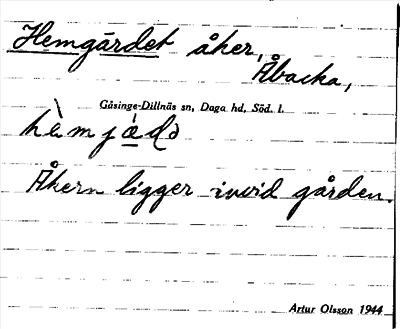 Hemgärdet åker,
Åbacka,
Gåsinge-Dillnäs sn, Daga hd, Söd. l.
Åkern ligger invid gården.
Artur Olsson 1944